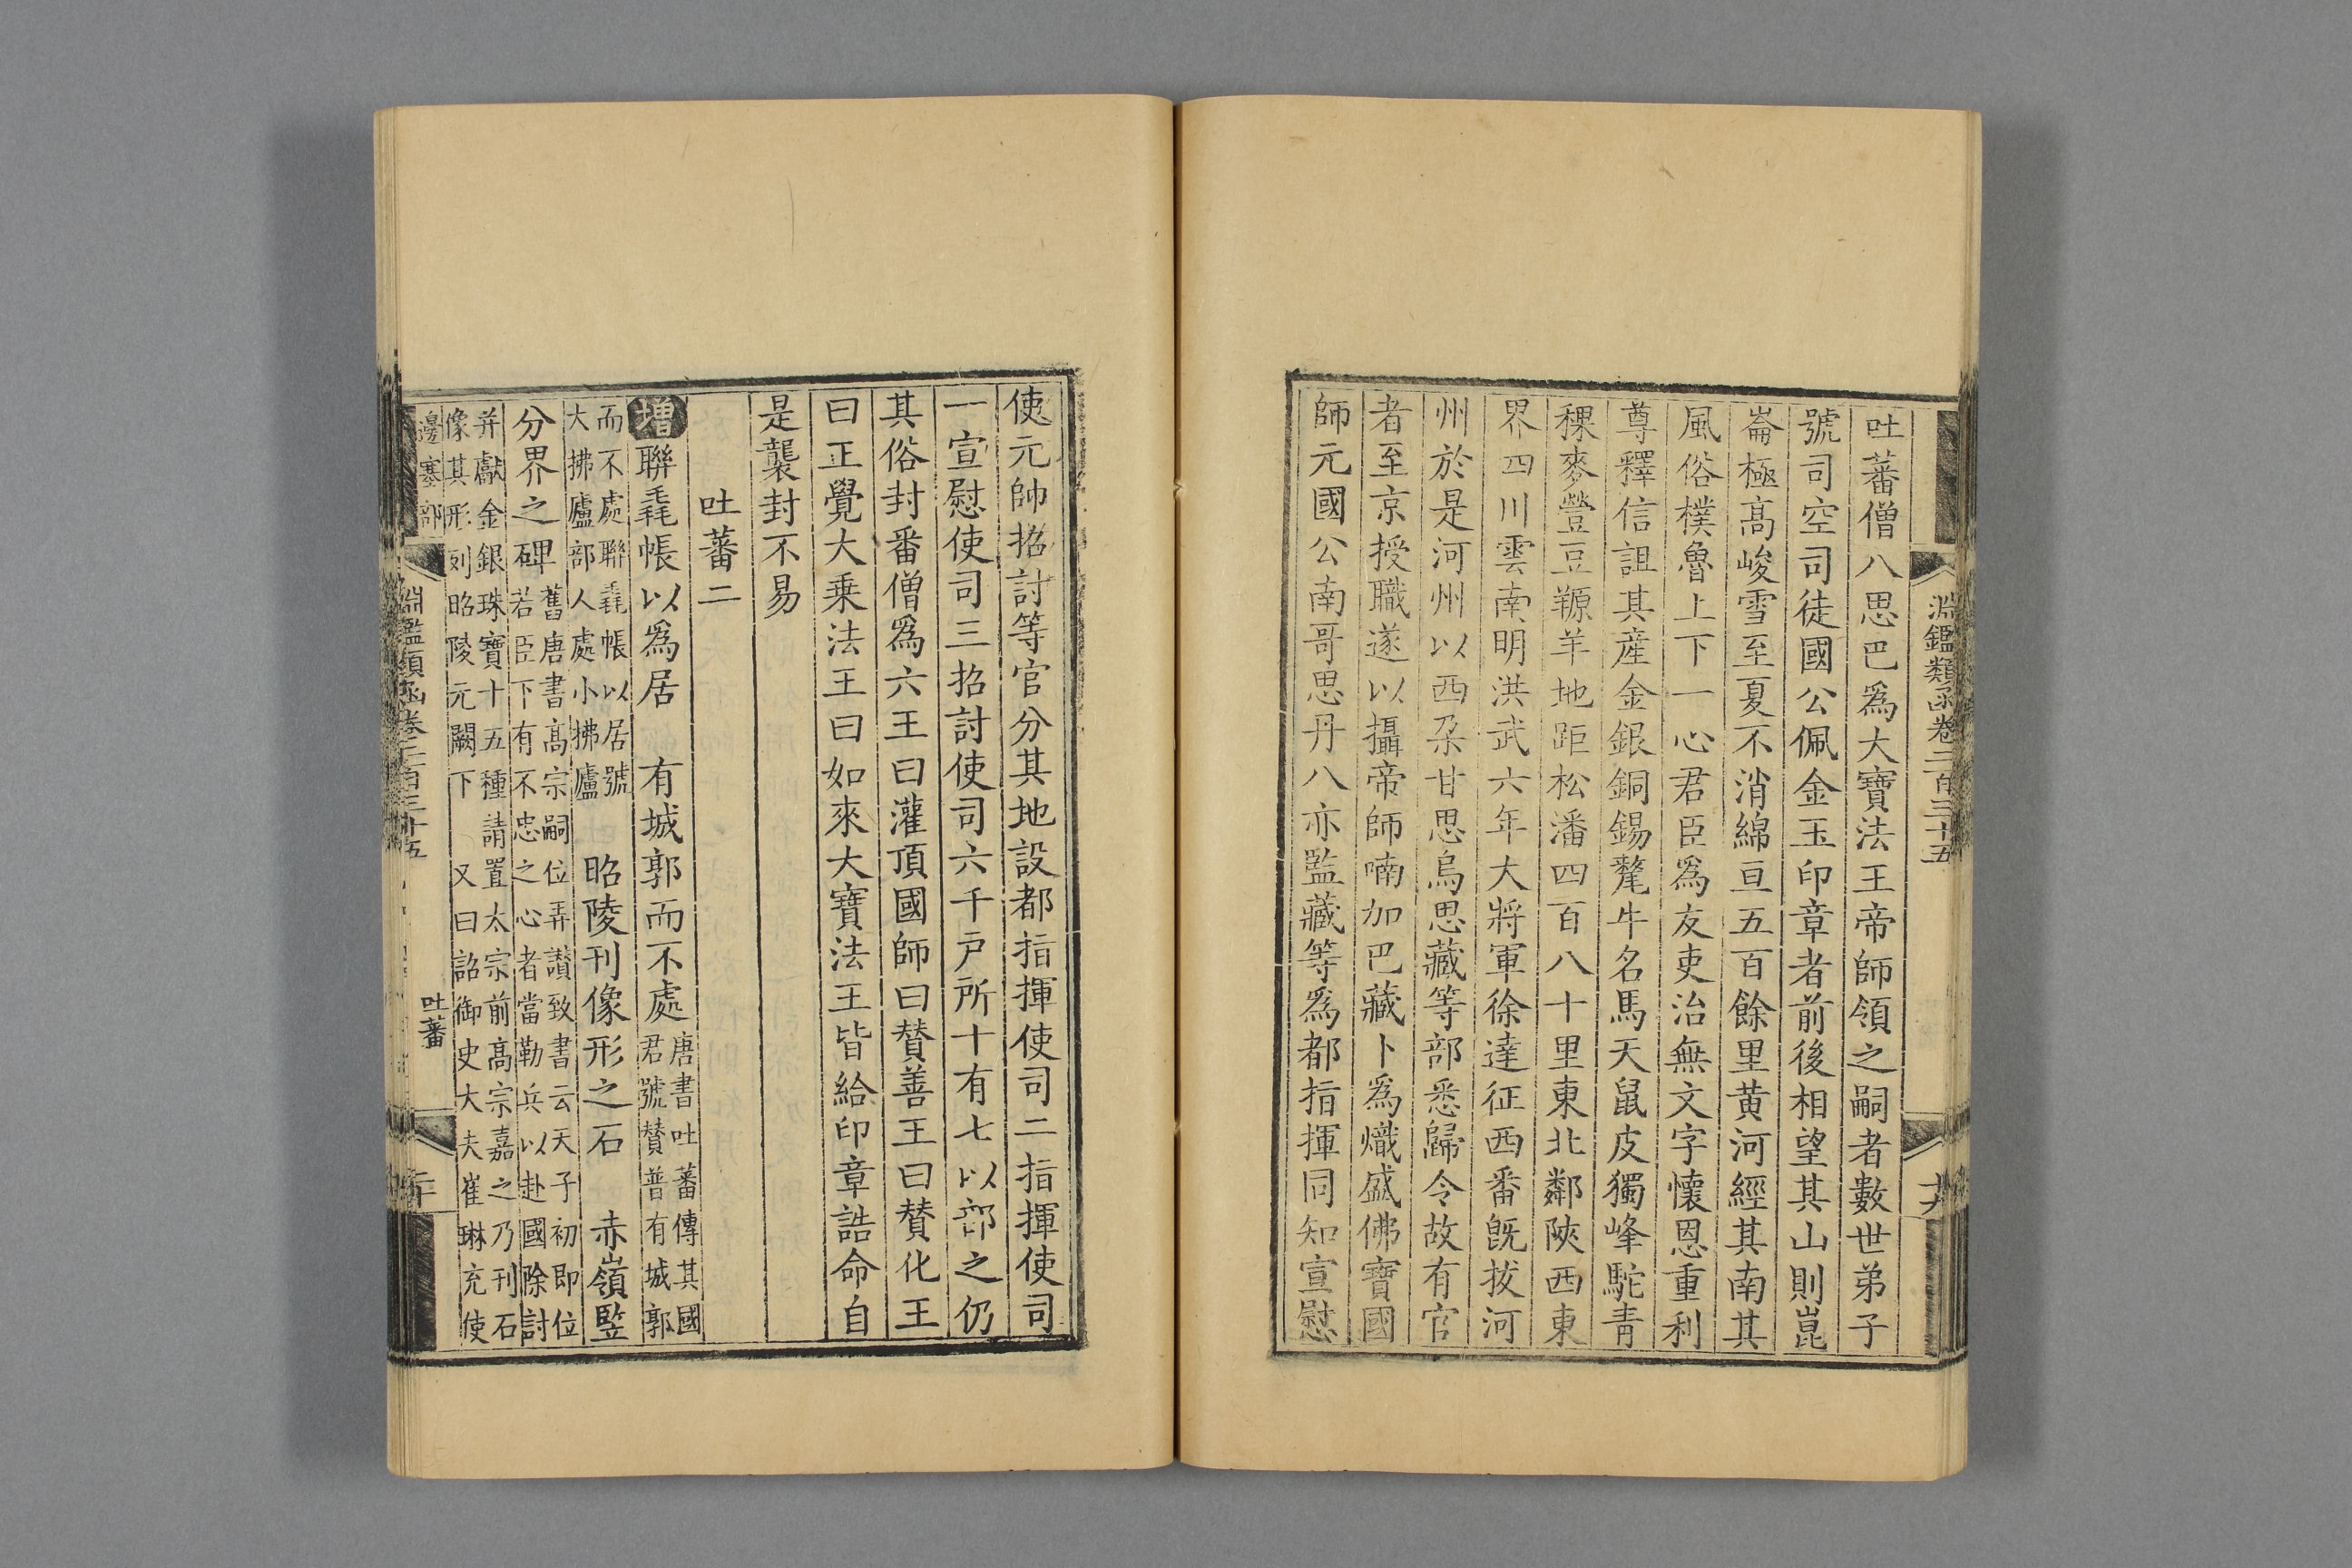 淵鑑類函卷二百三十五
吐蕃僧八思巴爲大寶法王帝師領之嗣者數世弟子
號司空司徒國公佩金玉印章者前後相望其山則崑
崙極高峻雪至夏不消綿亘五百餘里黄河經其南其
風俗樸魯上下一心君臣爲友吏治無文字懷恩重利
尊釋信詛其産金銀銅錫氂牛名馬天鼠皮獨峰駝青
稞麥豋豆羱羊地距松潘四百八十里東北鄰陝西東
界四川雲南明洪武六年大將軍徐達征西番旣拔河
州於是河州以西朶甘思烏思藏等部悉歸令故有官
者至京授職遂以攝帝師喃加巴藏卜爲熾盛佛寶國
師元國公南哥思丹八亦監藏等爲都指揮同知宣慰
使元帥招討等官分其地設都指揮使司二指揮使司
一宣慰使司三招討使司六千戸所十有七以部之仍
其俗封番僧爲六王曰灌頂國師曰賛善王曰賛化王
曰正覺大乗法王曰如來大寶法王皆給印章誥命自
是襲封不易
吐蕃二
增聯毳帳以爲居 有城郭而不處唐書吐蕃傳其國
君號賛普有城郭
而不處聯毳帳以居號
大拂廬部人處小拂廬 昭陵刊像形之石 赤嶺竪
分界之碑舊唐書高宗嗣位弄讃致書云天子初即位
若臣下有不忠之心者當勒兵以赴國除討
并獻金銀珠寶十五種請置太宗前高宗嘉之乃刊石
像其形列昭陵元闕下 又曰詔御史大夫崔琳充使
邊塞部
淵鑑類函卷二百三十五
吐蕃